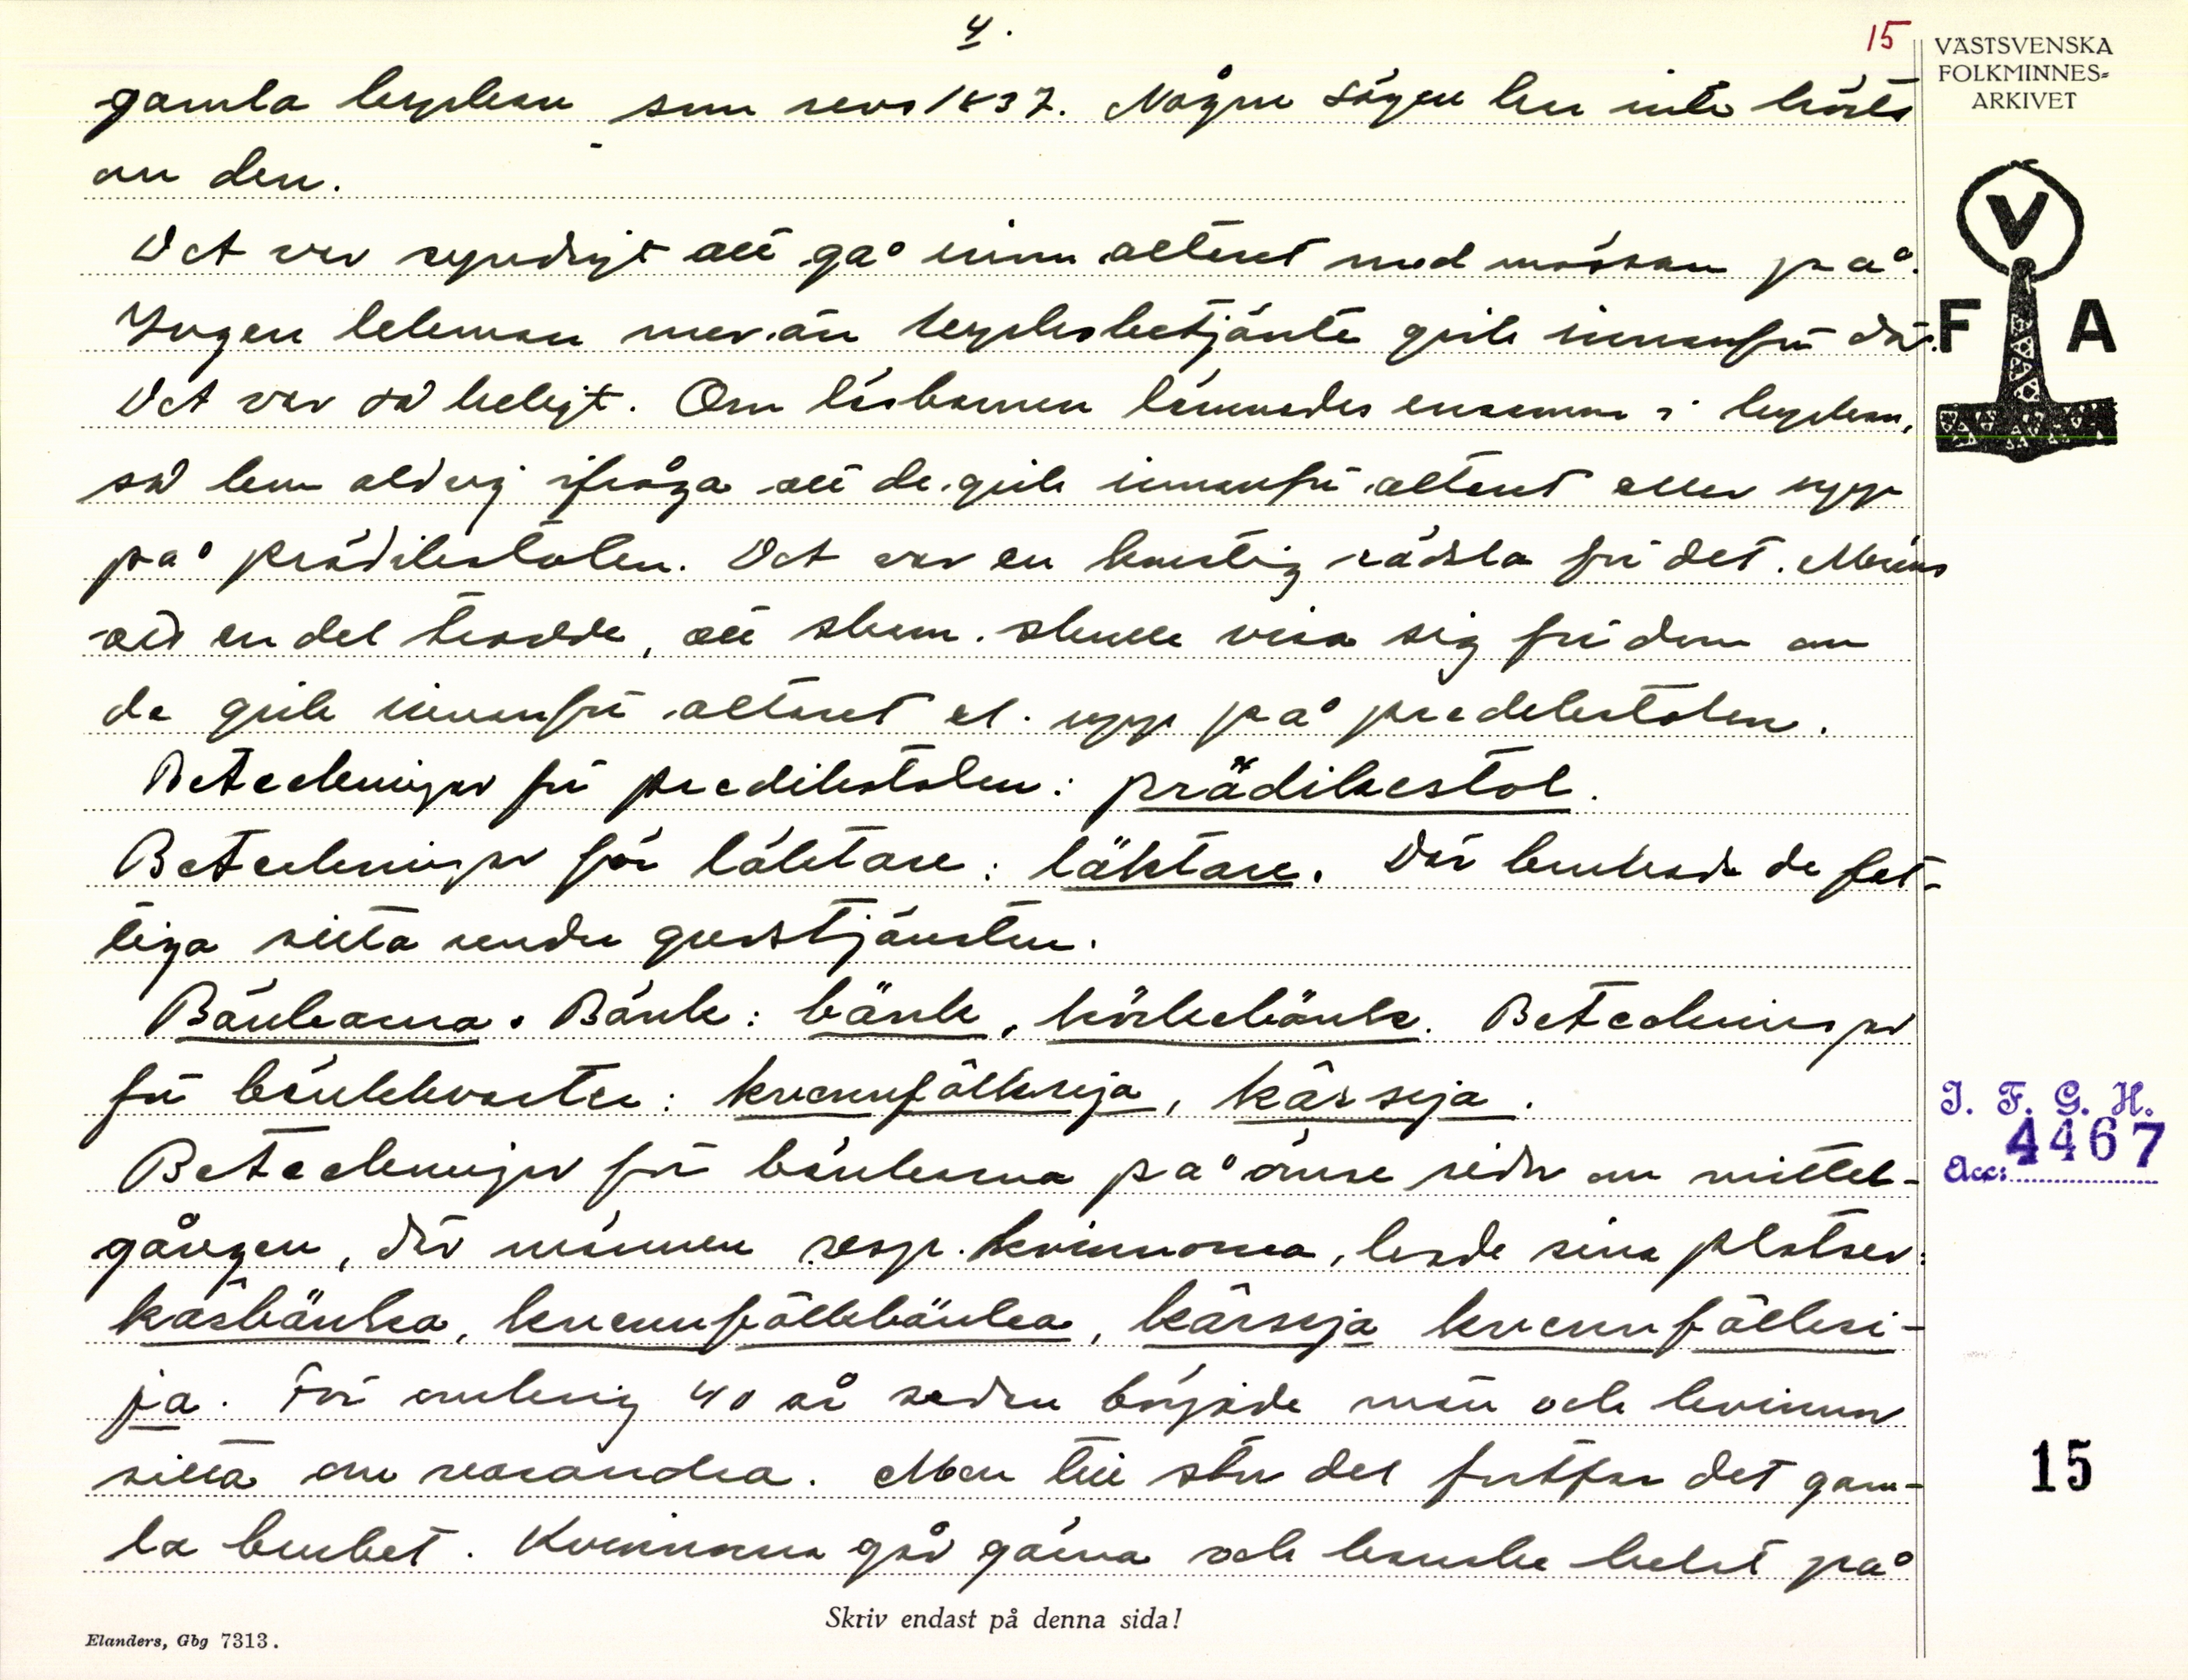 4.
15
VÄSTSVENSKA
FOLKMINNES-
ARKIVET
gamla kyrkan som revs 1837. Någon sägen har inte hörts
om den.
Det var syndigt att gå innom altaret med mössan på.
Ingen lekman mer än kyrkobetjänte gick innanför där.
Det var så heligt. Om läsbarnen lämnades ensamma i kyrkan,
så kom aldrig ifråga att de gick innanför altaret eller upp
på prädikstolen. Det var en konstig rädsla för det. Minns
att en del trodde, att skam skulle visa sig för dem om
de gick innanför altaret el. upp på predekstolen.
Beteckningar för predikstolen: prädikestol.
Beteckningar för läktare: läktare. Där brukade de fat-
tiga sitta under gudstjänsten.
Bänkarna. Bänk: bänk, körkebänk. Beteckningar
för bänkkvarter: kvennfôlkseja, kârseja.
Beteckningar för bänkarna på ömse sidor om mittel-
gången, där männen resp. kvinnorna, hade sina platser:
karbänka, kvennfôlkbänka, kârseja kvennfôlksi-
ja. För omkring 40 år sedan började män och kvinnor
sitta om varandra. Men till stor del fortfar det gam-
la bruket. Kvinnorna går gärna och kanske helst på
F V A
I. F. G. H.
4467
Acc:
15
Skriv endast på denna sida!
Elanders, Gbg 7313.